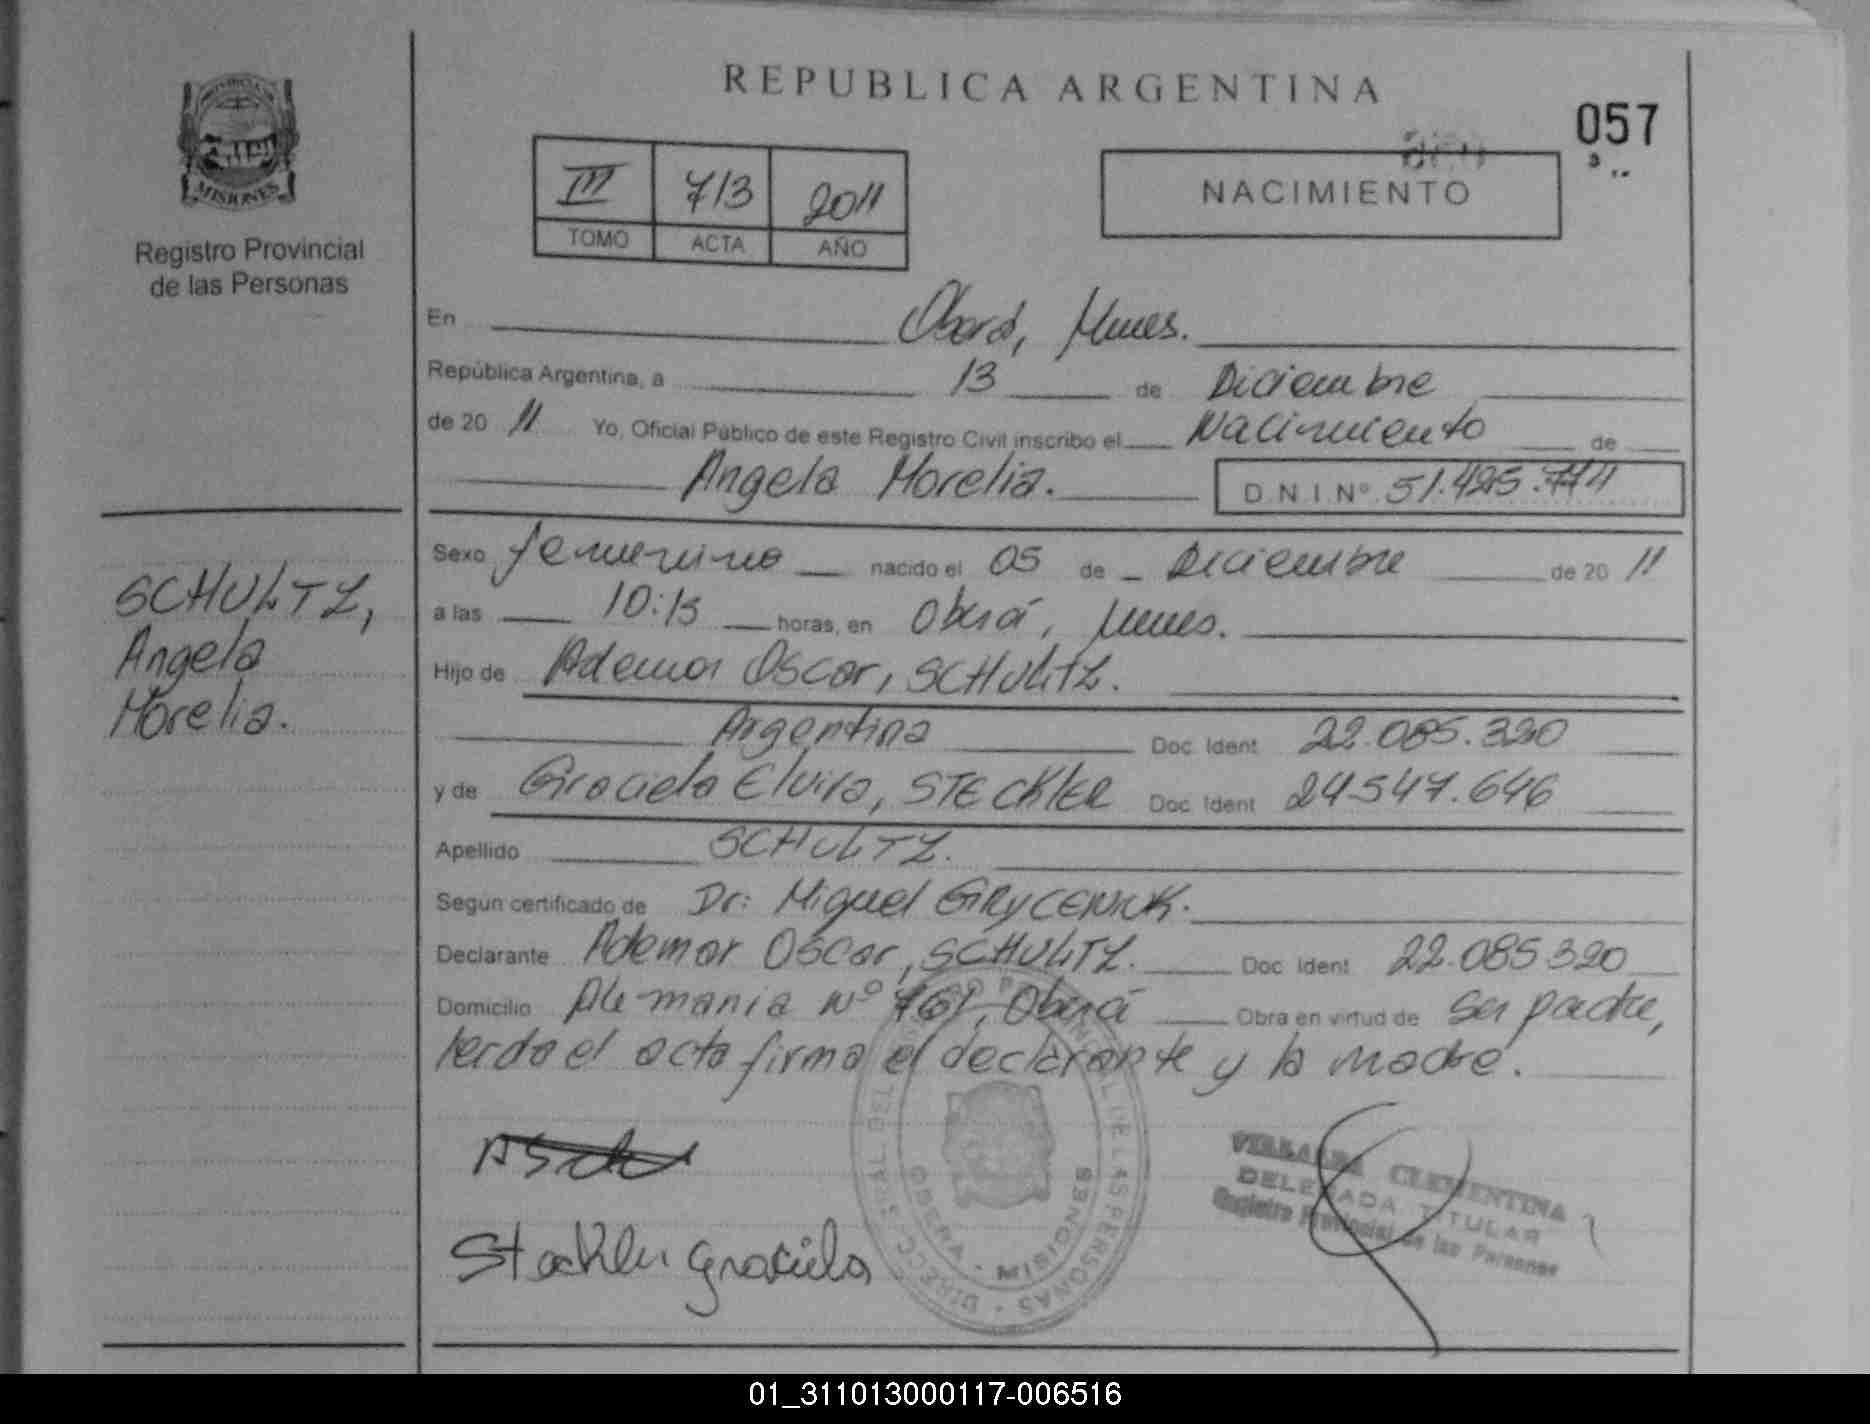 REPUBLICA ARGENTINA
057
MISIONES
Registro Provincial
de las Personas
III 713 2011
TOMO ACTA AÑO
NACIMIENTO
En Oberá, Mnes.
República Argentina, a 13 de Diciembre
de 20 11 Yo, Oficial Público de este Registro Civil inscribo el Nacimiento de
Angela Morelia. D.N.I.Nº 51.425.774
Sexo femenino nacido el 05 de Diciembre de 20 11
a las 10:15 horas, en Oberá, Mnes.
Hijo de Ademar Oscar, SCHULTZ.
Argentina Doc. Ident 22.085.320
y de Graciela Elvira, STECKLER Doc. Ident 24547.646
Apellido SCHULTZ.
Según certificado de Dr: Miguel
Declarante Ademar Oscar, SCHULTZ. Doc. Ident 22.085320
Domicilio Alemania Nº 761, Oberá Obra en virtud de ser padre,
leida el acta firma el declarante y la madre.
SCHULTZ,
Angela
Morelia.
Steckler Graciela
CLEMENTINA
DELEGADA TITULAR
Registro Provincial de las Personas
PROVINCIAL DE LAS PERSONAS
OBERA - MISIONES
01_311013000117-006516